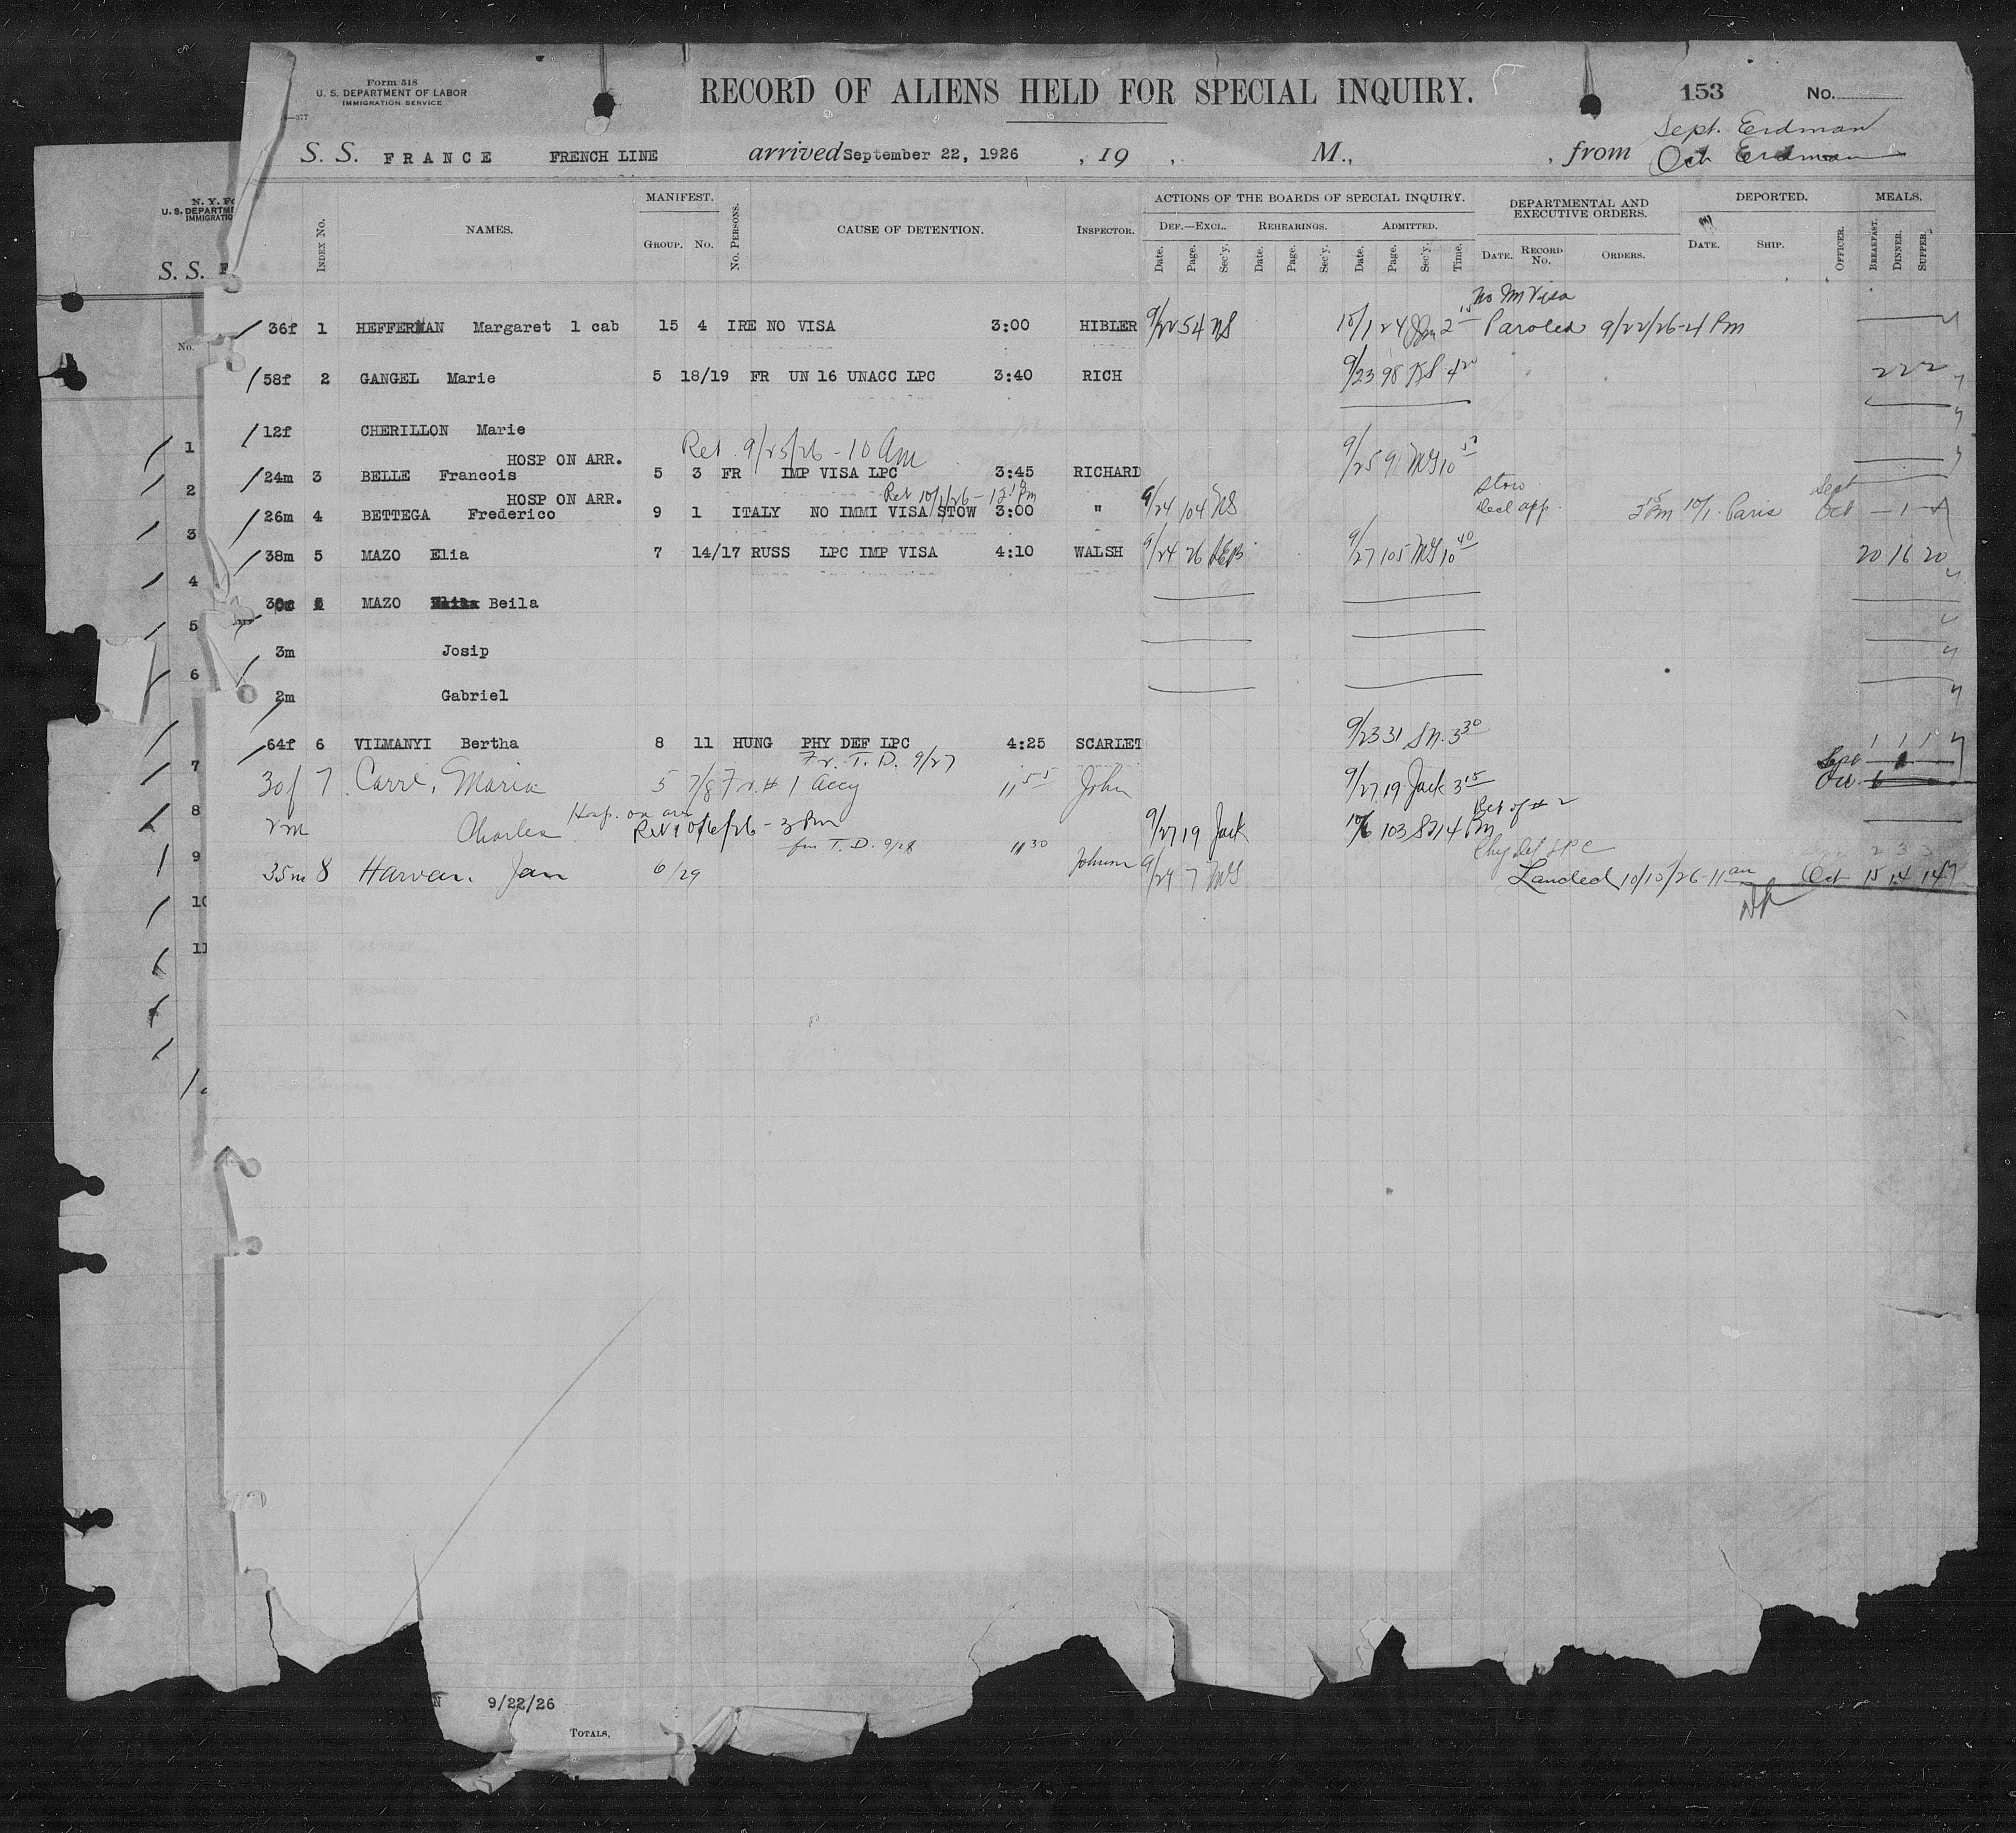 Form 518
U. S. DEPARTMENT OF LABOR
IMMIGRATION SERVICE
RECORD OF ALIENS HELD FOR SPECIAL INQUIRY.
153 No.
Sept. Erdman
S. S. FRANCE FRENCH LINE arrived September 22, 1926 , 19 , M., , from Oct Erdman
N. Y. Fo
U. S. DEPARTME
IMMIGRATIO
S. S. F
No.
INDEX No. NAMES. MANIFEST. GROUP. No. No. PERSONS. CAUSE OF DETENTION. INSPECTOR. ACTIONS OF THE BOARDS OF SPECIAL INQUIRY. DEF.—EXCL. Date. Page. Sec'y. REHEARINGS. Date. Page. Sec'y. ADMITTED. Date. Page. Sec'y. Time. DEPARTMENTAL AND EXECUTIVE ORDERS. DATE. RECORD No. ORDERS. DEPORTED. DATE. SHIP. OFFICER. MEALS. BREAKFAST. DINNER. SUPPER.
No Im Visa
36f 1 HEFFERNAN Margaret 1 cab 15 4 IRE NO VISA 3:00 HIBLER 9/22 54 NS 10/1 24 2 15 Paroled 9/22/26-4 Pm
58f 2 GANGEL Marie 5 18/19 FR UN 16 UNACC LPC 3:40 RICH 9/23 98 4 20 2 2 2
12f CHERILLON Marie
HOSP ON ARR. Ret 9/25/26 - 10 am
24m 3 BELLE Francois 5 3 FR IMP VISA LPC 3:45 RICHARD 9/25 91 MG 10
HOSP ON ARR. Ret 10/1/26 - 12 Pm Stow Sept
26m 4 BETTEGA Frederico 9 1 ITALY NO IMMI VISA STOW 3:00 " 9/24 104 NS Decl app. Pm 10/1 Paris Oct — 1
38m 5 MAZO Elia 7 14/17 RUSS LPC IMP VISA 4:10 WALSH 9/24 26 9/27 105 MG 10 40 20 16 20
MAZO Beila
3m Josip
2m Gabriel
64f 6 VILMANYI Bertha 8 11 HUNG PHY DEF LPC 4:25 SCARLET 9/23 31 SN. 3 30 1 1 1
Fr. T. D. 9/27
30f 7 Carre, Maria 5 7/8 Fr. # 1 Accy 11 55 John 9/27 19 Jack 3 15
2m Charles Hosp. on arr Ret 10/6/26 - 3 Pm 9/27 19 Jack 10/6 103 4 Pm Ret of # 2
fm T. D. 9/28 11 30 Phy Def LPC
35m 8 Harvan. Jan 6/29 Johnson 9/29 7 MG Landed 10/10/26-11 am Oct 15 14 14
1
2
3
4
5
6
7
8
9
10
11
N 9/22/26
TOTALS,